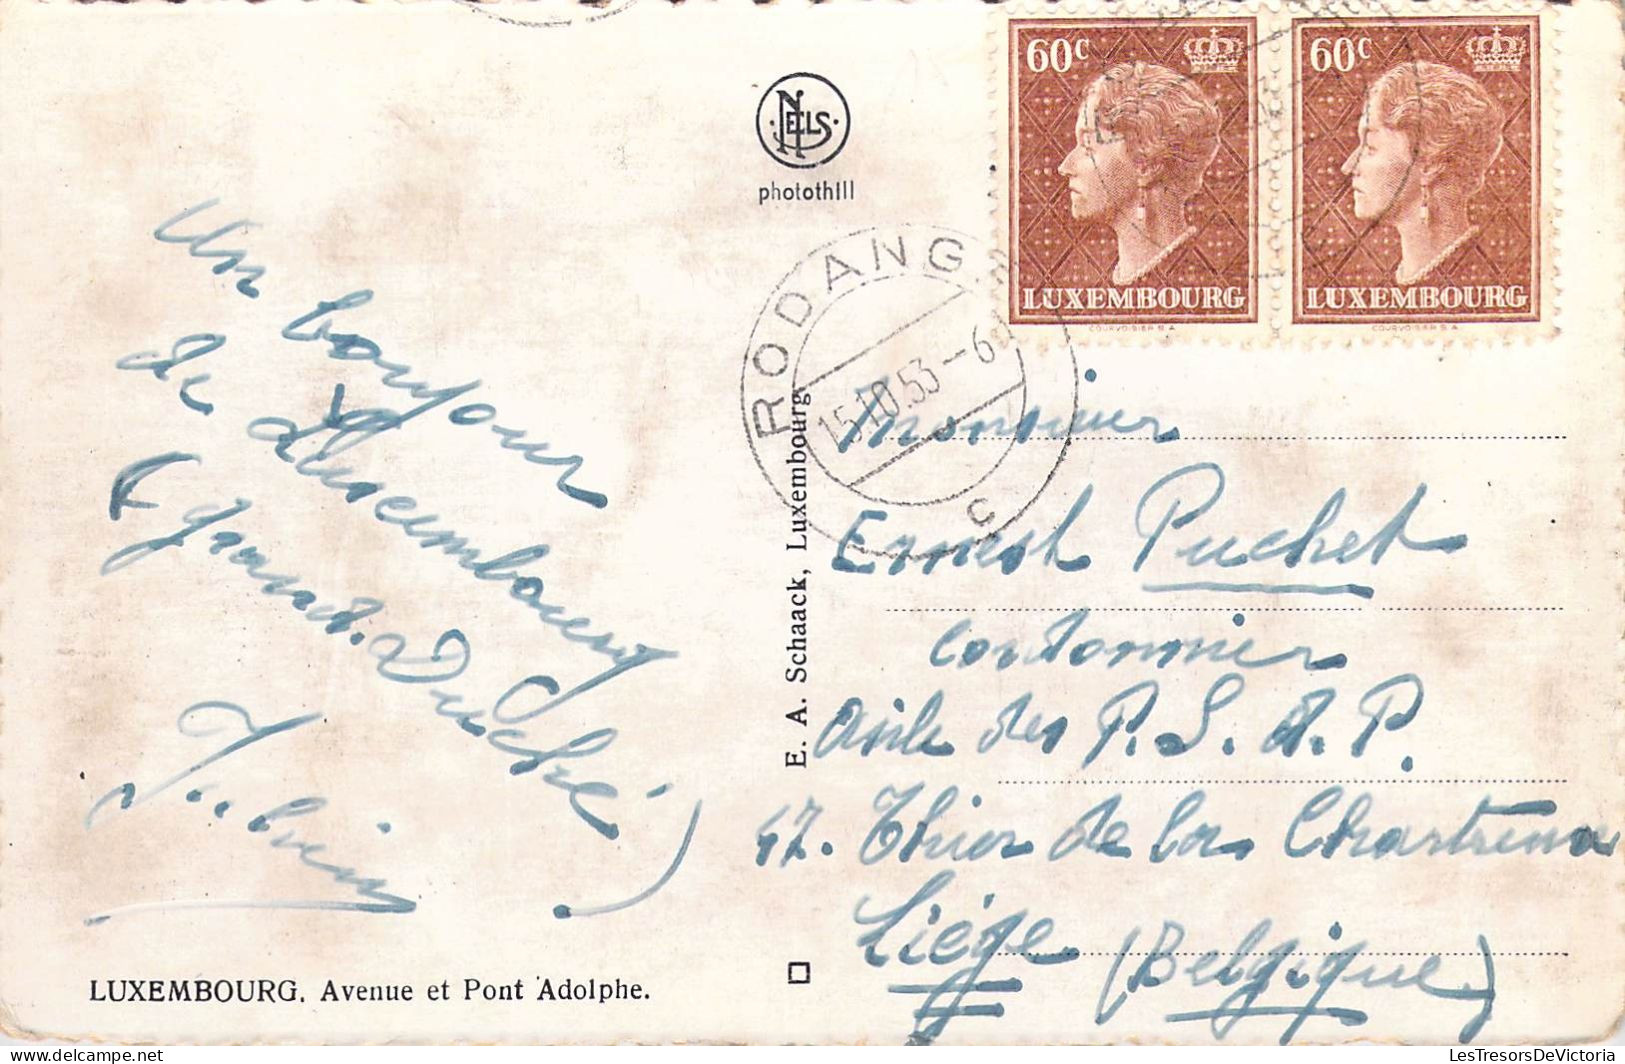 60c
60c
LUXEMBOURG
LUXEMBOURG
COURVOISIER S.A.
COURVOISIER S.A.
NELS
photothill
RODANGE
15.10.53-6
C
Un bonjour
de Luxembourg
(grand. Duché)
E. A. Schaack, Luxembourg.
Monsieur
Ernest Puchet
Cantonnier
Asile des P. S. d. P.
47. Thier de la Chartreuse
Liége (Belgique)
LUXEMBOURG. Avenue et Pont Adolphe.
LesTresorsDeVictoria
delcampe.net